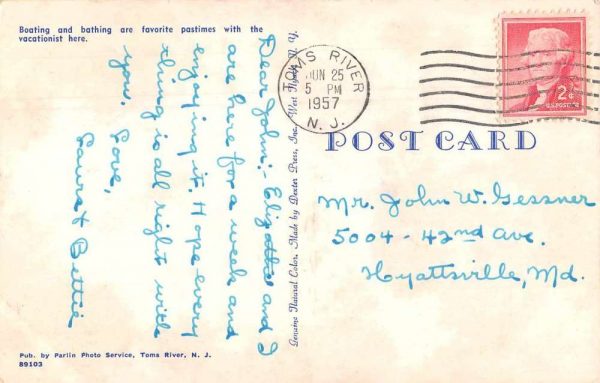 Boating and bathing are favorite pastimes with the
vacationist here.
Dear John:- Elizabeth and I
are here for a week and
enjoying it. Hope every
thing is all right with
you.
Love,
Laura & Bettie
Pub. by Parlin Photo Service, Toms River, N. J.
89103
Genuine Natural Color. Made by Dexter Press, Inc., West Nyack, N. Y.
TOMS RIVER
JUN 25
5 PM
1957
N. J.
2¢
U.S. POSTAGE
POST CARD
Mr. John W. Gessner
5004 - 42nd Ave.
Hyattsville, Md.